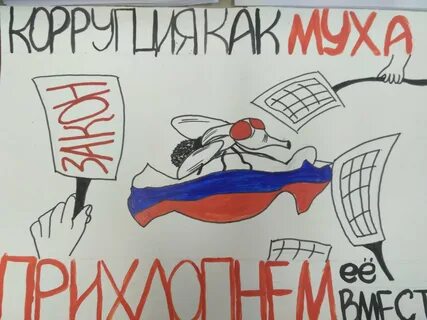 КОРРУПЦИЯ КАК МУХА
ЗАКОН
ПРИХЛОПНЕМ её
ВМЕСТ